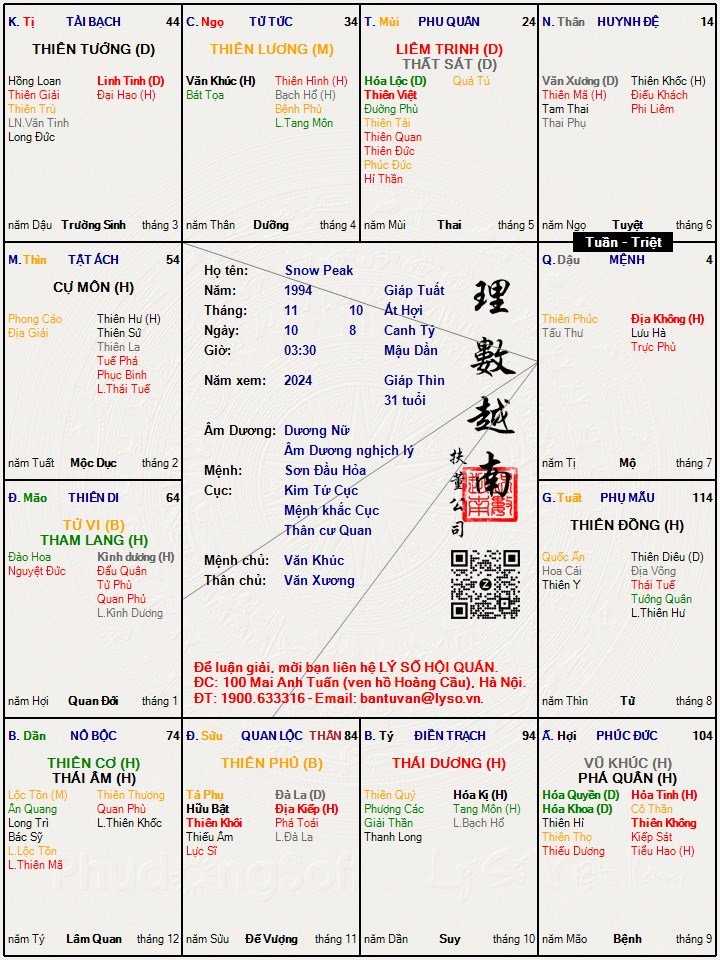 K. Tị TÀI BẠCH 44
THIÊN TƯỚNG (D)
Hồng Loan
Thiên Giải
Thiên Trù
LN.Văn Tinh
Long Đức
Linh Tinh (D)
Đại Hao (H)
năm Dậu Trường Sinh tháng 3
C. Ngọ TỬ TỨC 34
THIÊN LƯƠNG (M)
Văn Khúc (H)
Bát Tọa
Thiên Hình (H)
Bạch Hổ (H)
Bệnh Phù
L.Tang Môn
năm Thân Dưỡng tháng 4
T. Mùi PHU QUÂN 24
LIÊM TRINH (D)
THẤT SÁT (D)
Hóa Lộc (D)
Thiên Việt
Đường Phù
Thiên Tài
Thiên Quan
Thiên Đức
Phúc Đức
Hỉ Thần
Quả Tú
năm Mùi Thai tháng 5
N. Thân HUYNH ĐỆ 14
Văn Xương (D)
Thiên Mã (H)
Tam Thai
Thai Phụ
Thiên Khốc (H)
Điếu Khách
Phi Liêm
năm Ngọ Tuyệt tháng 6
Tuần - Triệt
M. Thìn TẬT ÁCH 54
CỰ MÔN (H)
Phong Cáo
Địa Giải
Thiên Hư (H)
Thiên Sứ
Thiên La
Tuế Phá
Phục Binh
L.Thái Tuế
năm Tuất Mộc Dục tháng 2
Họ tên: Snow Peak
Năm: 1994 Giáp Tuất
Tháng: 11 10 Ất Hợi
Ngày: 10 8 Canh Tý
Giờ: 03:30 Mậu Dần
Năm xem: 2024 Giáp Thìn
31 tuổi
Âm Dương: Dương Nữ
Âm Dương nghịch lý
Mệnh: Sơn Đầu Hỏa
Cục: Kim Tứ Cục
Mệnh khắc Cục
Thân cư Quan
Mệnh chủ: Văn Khúc
Thân chủ: Văn Xương
理數越南
扶董公司
Để luận giải, mời bạn liên hệ LÝ SỐ HỘI QUÁN.
ĐC: 100 Mai Anh Tuấn (ven hồ Hoàng Cầu), Hà Nội.
ĐT: 1900.633316 - Email: bantuvan@lyso.vn.
Q. Dậu MỆNH 4
Thiên Phúc
Tấu Thư
Địa Không (H)
Lưu Hà
Trực Phù
năm Tị Mộ tháng 7
Đ. Mão THIÊN DI 64
TỬ VI (B)
THAM LANG (H)
Đào Hoa
Nguyệt Đức
Kình dương (H)
Đẩu Quân
Tử Phù
Quan Phủ
L.Kình Dương
năm Hợi Quan Đới tháng 1
G. Tuất PHỤ MẪU 114
THIÊN ĐỒNG (H)
Quốc Ấn
Hoa Cái
Thiên Y
Thiên Diêu (D)
Địa Võng
Thái Tuế
Tướng Quân
L.Thiên Hư
năm Thìn Tử tháng 8
B. Dần NÔ BỘC 74
THIÊN CƠ (H)
THÁI ÂM (H)
Lộc Tồn (M)
Ân Quang
Long Trì
Bác Sỹ
L.Lộc Tồn
L.Thiên Mã
Thiên Thương
Quan Phù
L.Thiên Khốc
năm Tý Lâm Quan tháng 12
Đ. Sửu QUAN LỘC THÂN 84
THIÊN PHỦ (B)
Tả Phụ
Hữu Bật
Thiên Khôi
Thiếu Âm
Lực Sĩ
Đà La (D)
Địa Kiếp (H)
Phá Toái
L.Đà La
năm Sửu Đế Vượng tháng 11
B. Tý ĐIỀN TRẠCH 94
THÁI DƯƠNG (H)
Thiên Quý
Phượng Các
Giải Thần
Thanh Long
Hóa Kị (H)
Tang Môn (H)
L.Bạch Hổ
năm Dần Suy tháng 10
Ấ. Hợi PHÚC ĐỨC 104
VŨ KHÚC (H)
PHÁ QUÂN (H)
Hóa Quyền (D)
Hóa Khoa (D)
Thiên Hỉ
Thiên Thọ
Thiếu Dương
Hỏa Tinh (H)
Cô Thần
Thiên Không
Kiếp Sát
Tiểu Hao (H)
năm Mão Bệnh tháng 9